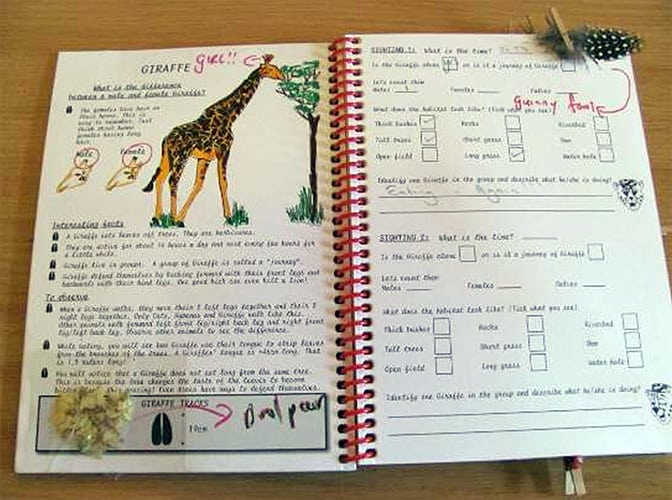 GIRAFFE girl!!
What is the difference
between a male and female Giraffe?
The females have hair on
their horns. This is
easy to remember. Just
think about human
females having long
hair.
Male
Female
Interesting facts
A Giraffe eats leaves off trees. They are herbivores.
They are active for about 16 hours a day and rest every few hours for
a little while.
Giraffe live in groups. A group of Giraffe is called a "journey".
Giraffe defend themselves by kicking forward with their front legs and
backwards with their hind legs. One good kick can even kill a lion!
To observe
When a Giraffe walks, they move their 2 left legs together and then 2
right legs together. Only Cats, Hyaenas and Giraffe walk like this.
Other animals walk forward left front leg/right back leg and right front
leg/left back leg. Observe other animals to see the difference.
While eating, you will see how Giraffe use their tongue to strip leaves
from the branches of the trees. A Giraffes' tongue is 45cm long. That
is 1,5 rulers long!
You will notice that a Giraffe does not eat long from the same tree.
This is because the tree changes the taste of the leaves to become
GIRAFFE TRACES
19cm
SIGHTING 1: What is the time?
Is the Giraffe alone or is it a journey of Giraffe
Lets count them
Males 1 Females Babies
guinny fowl
What does the habitat look like? (Tick what you see)
Thick bushes Rocks Riverbed
Tall trees Short grass Dam
Open field Long grass Water hole
Identify one Giraffe in the group and describe what he/she is doing?
Eating - Again!!!
SIGHTING 2: What is the time?
Is the Giraffe alone or is it a journey of Giraffe
Lets count them
Males Females Babies
What does the habitat look like? (Tick what you see)
Thick bushes Rocks Riverbed
Tall trees Short grass Dam
Open field Long grass Water hole
Identify one Giraffe in the group and describe what he/she is doing?